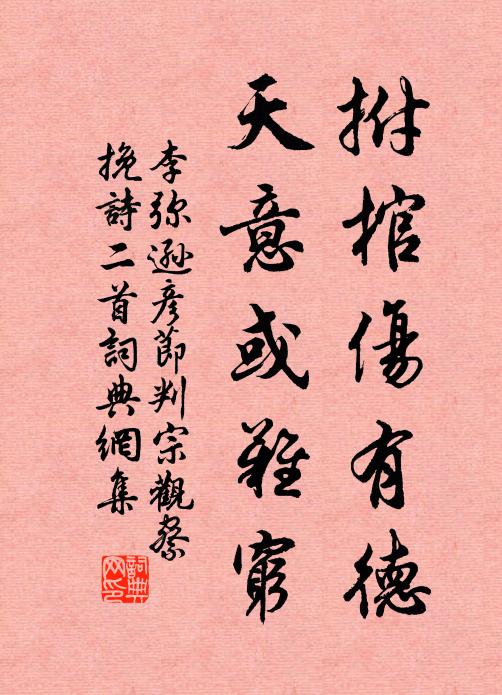 拊棺傷有德
天意或難窮
李弥遜彦節判宗觀察
挽詩二首詞典網集
詞典网印